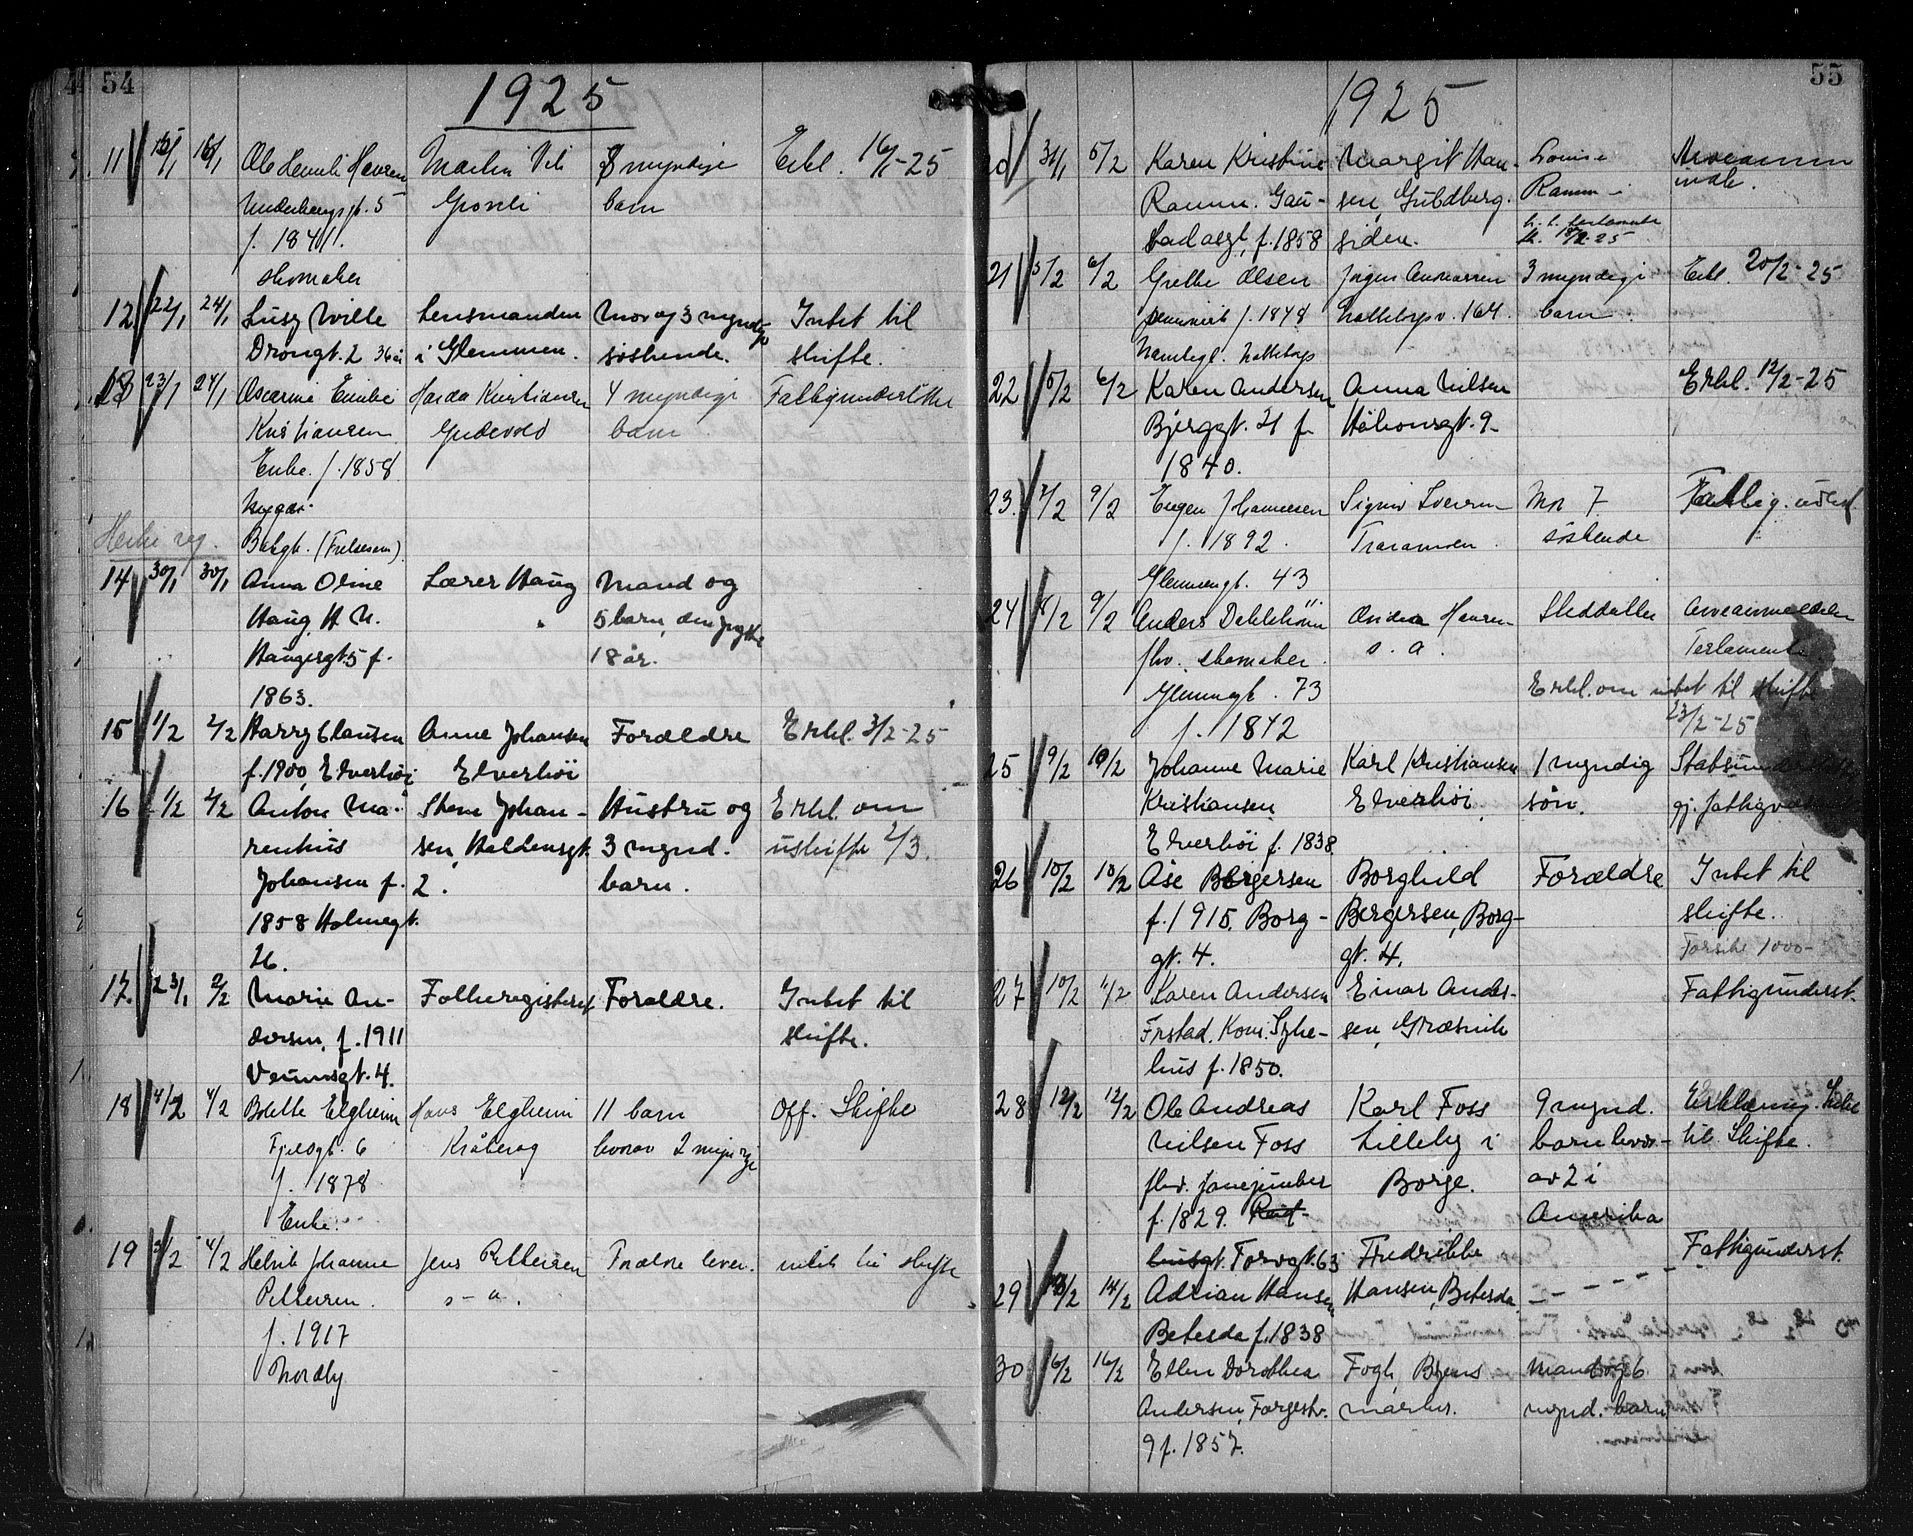 54
1925
11 15/1 16/1 Ole Henrik Hansen Martin Vik 8 myndige Erkl. 16/1-25
5 Gronli barn
f. 1841.
skomaker
12 22/1 24/1 Lusy Wille Lensmanden Mor og 3 myndige Intet til
Drongt. 2 36 i Glemmen. søskende. skifte.
13 23/1 24/1 Oscarine Emilie Kristiansen 4 myndige
Kristiansen barn
Enke. f. 1858
Nygår.
Bakgt. (Frelsesarm)
14 30/1 30/1 Anna Oline Lærer Haug Mand og
Haug, H. N. 5 barn, den yngste
Haugesgt. 5 f. 18 år.
1863.
15 1/2 2/2 Harry Clausen Anne Johansen Forældre Erkl. 3/2-25
f. 1900, Elverhöi Elverhöi
16 1/2 2/2 Anton Ma- Johan- Hustru og Erkl. om
renhius sen, Haldensgt. 3 mynd. uskifte 2/3.
Johansen f. 2. barn.
1858 Holmegt.
26.
17. 23/1 2/2 Marie An- Folkeregisteret Forældre. Intet til
dersen, f. 1911 skifte.
Veumsgt. 4.
18 4/2 4/2 Bolette Elgheim Hans Elgheim 11 barn Off. Skifte
Fjeldgt. 6 Kråkerøy hvorav 2 myndige
f. 1878
Enke.
19 4/2 Henrik Johanne Jens Pettersen Forældre lever. intet til skifte
Pettersen. s-a.
f. 1917
Nordby
55
1925
20 31/1 5/2 Karen Kristine Margit Han- Louise
Ramm. Gau- sen, Guldberg- Ramm
stadasyl, f. 1858 siden.
21 5/2 6/2 Grethe Olsen Jørgen Andreassen 3 myndige Erkl. 20/2-25
f. 1848 164. barn.
22 5/2 6/2 Karen Andersen Anna Nilsen Erkl. 12/2-25
Bjergгt. 21 f. Håkonsgt. 9-
1840.
23. 7/2 9/2 Eugen Johannesen Signe Iversen Mor 7 Fattig. underst.
f. 1892. Traranveien. søskende
Glemmengt. 43
24 8/2 9/2 Anders Dahlström Andrea Hansen
fhv. skomaker. s. a. Testamente
Glemmengt. 73 Erkl. om intet til skifte
f. 1842 23/2-25
25 9/2 10/2 Johanne Marie Karl Kristiansen 1 myndig
Kristiansen, Elverhöi, søn.
Elverhöi f. 1838
26 10/2 10/2 Åse Børgersen Borghild Forældre Intet til
f. 1915. Borg- Bergersen, Borg- skifte.
gt. 4. gt. 4. 1000-
27 10/2 11/2 Karen Andersen Einar Ander- Fattigunderst.
Frstad. Kom. Syke- sen, Græsvik
hus f. 1850.
28 12/2 12/2 Ole Andreas Karl Foss 9 mynd. Erklæring. Intet
Nilsen Foss Lilleby i barn hvor- til Skifte.
fhv. Borge. av 2 i
f. 1829. Amerika
Torvgt. 63 Fredrikke Fattigunderst.
29 14/2 Adrian Hansen Hansen, Betesda - - - -
Betesda f. 1838
30 16/2 16/2 Ellen Dorothea Fogh, Mand og 6
Andersen, Færgestr. marker. mynd. barn
9 f. 1857.